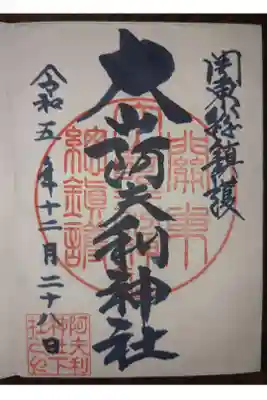 関東総鎮護
大山阿夫利神社
令和五年十二月二十八日
關東
總鎮護
阿夫利
神社下